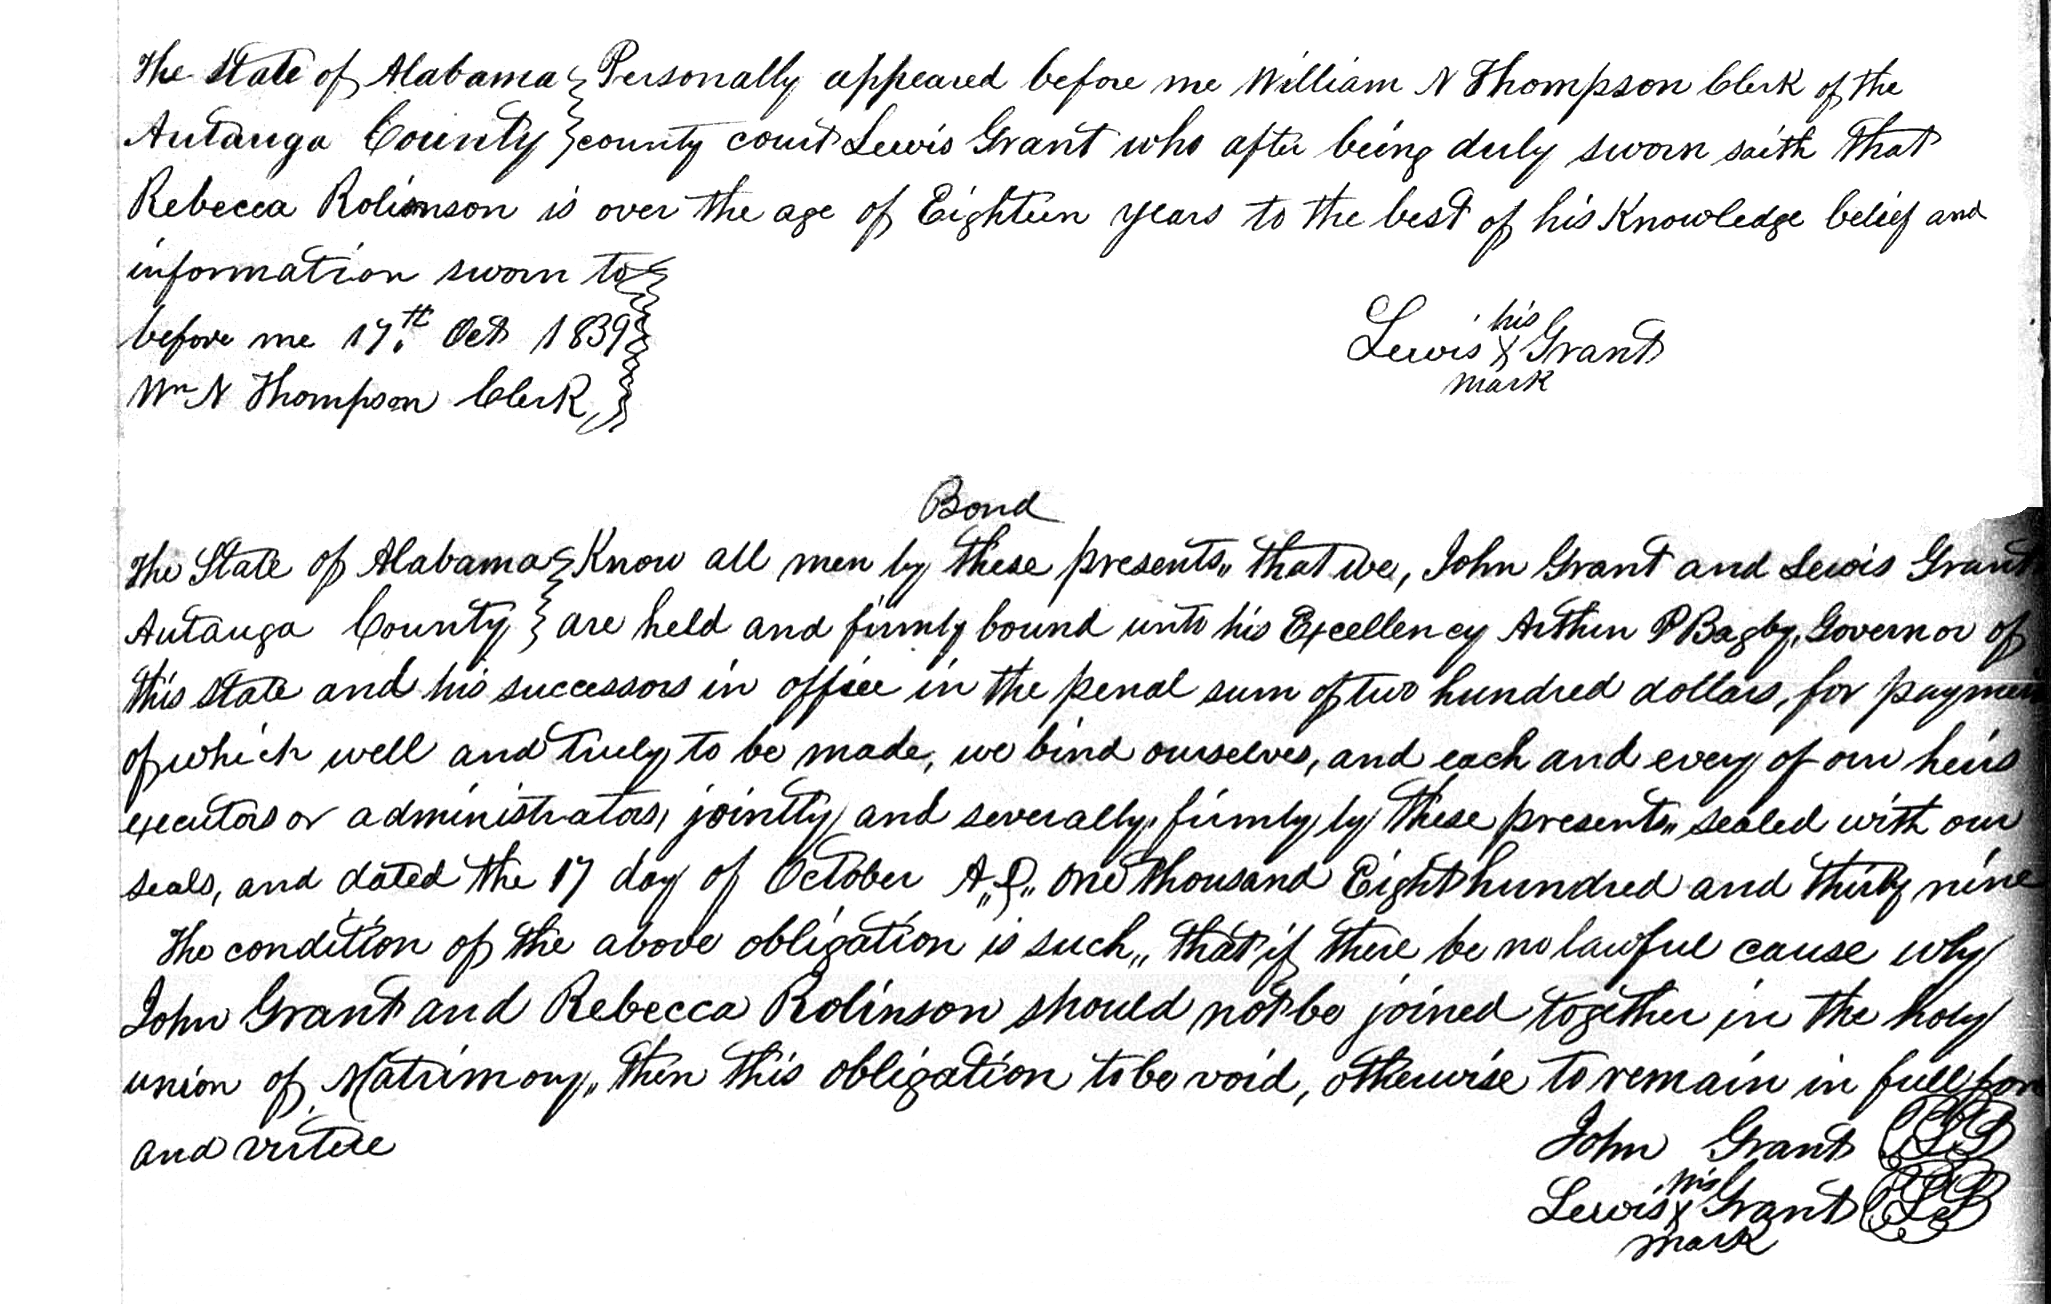 The State of Alabama } Personally appeared before me William N Thompson Clerk of the
Autauga County } county court Lewis Grant who after being duly sworn saith that
Rebecca Rolinson is over the age of Eighteen years to the best of his Knowledge belief and
information sworn to
before me 17th Oct 1839
his
Lewis X Grant
mark
Wm N Thompson Clerk
Bond
The State of Alabama } Know all men by these presents,, that we, John Grant and Lewis Grant
Autauga County } are held and firmly bound unto his Excellency Arthur P Bagby, Governor of
this state and his successors in office in the penal sum of two hundred dollars, for payment
of which well and truly to be made, we bind ourselves, and each and every of our heirs
executors or administrators, jointly and severally, firmly by these presents,, sealed with our
seals, and dated the 17 day of October A,,D,, one thousand Eight hundred and thirty nine
The condition of the above obligation is such,, that if there be no lawful cause why
John Grant and Rebecca Rolinson should not be joined together in the holy
union of Matrimony,, then this obligation to be void, otherwise to remain in full force
and virtue
John Grant
his
Lewis X Grant
mark